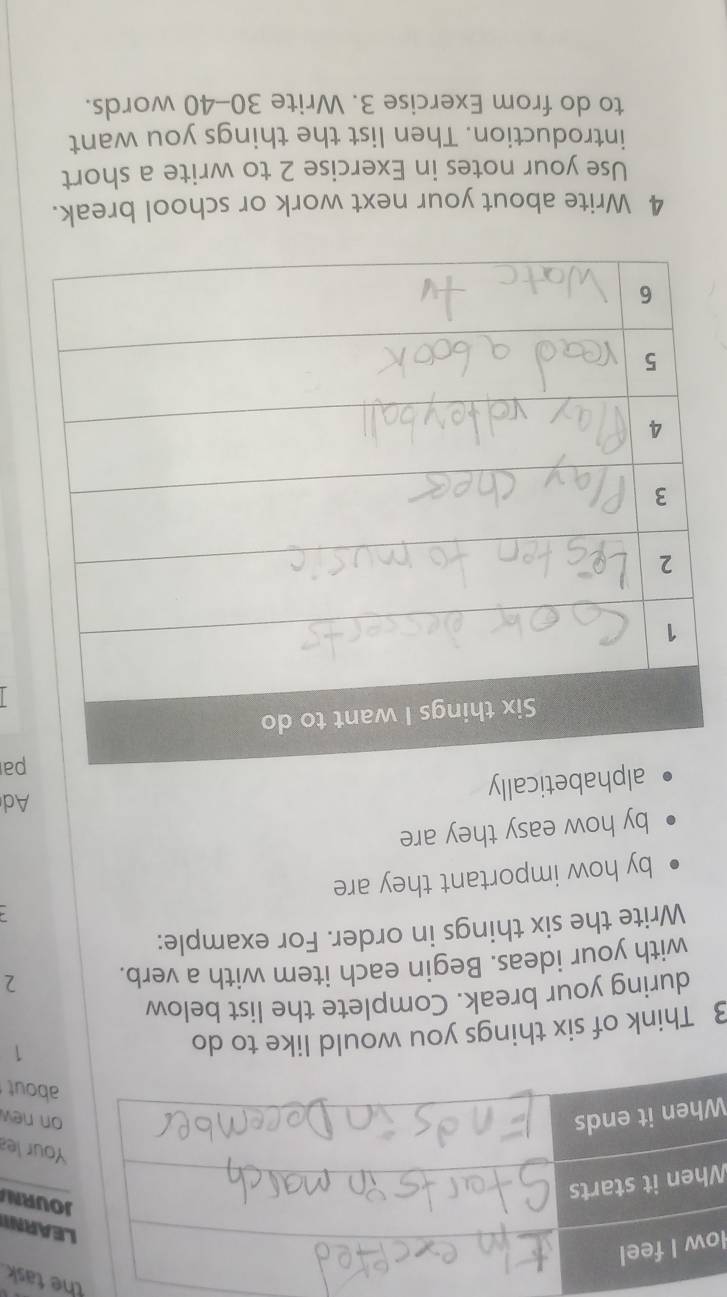 the task.
How I feel I'm excpted
When it starts Starts in march
When it ends Ends in December
LEARNIN
JOURNA
Your lea
on new
about
1
2
3
Ad
pa
3 Think of six things you would like to do
during your break. Complete the list below
with your ideas. Begin each item with a verb.
Write the six things in order. For example:
• by how important they are
• by how easy they are
• alphabetically
Six things I want to do
1 Cook desserts
2 Lesten to music
3 Play chess
4 Play volleyball
5 read a book
6 Watc tv
4 Write about your next work or school break.
Use your notes in Exercise 2 to write a short
introduction. Then list the things you want
to do from Exercise 3. Write 30–40 words.